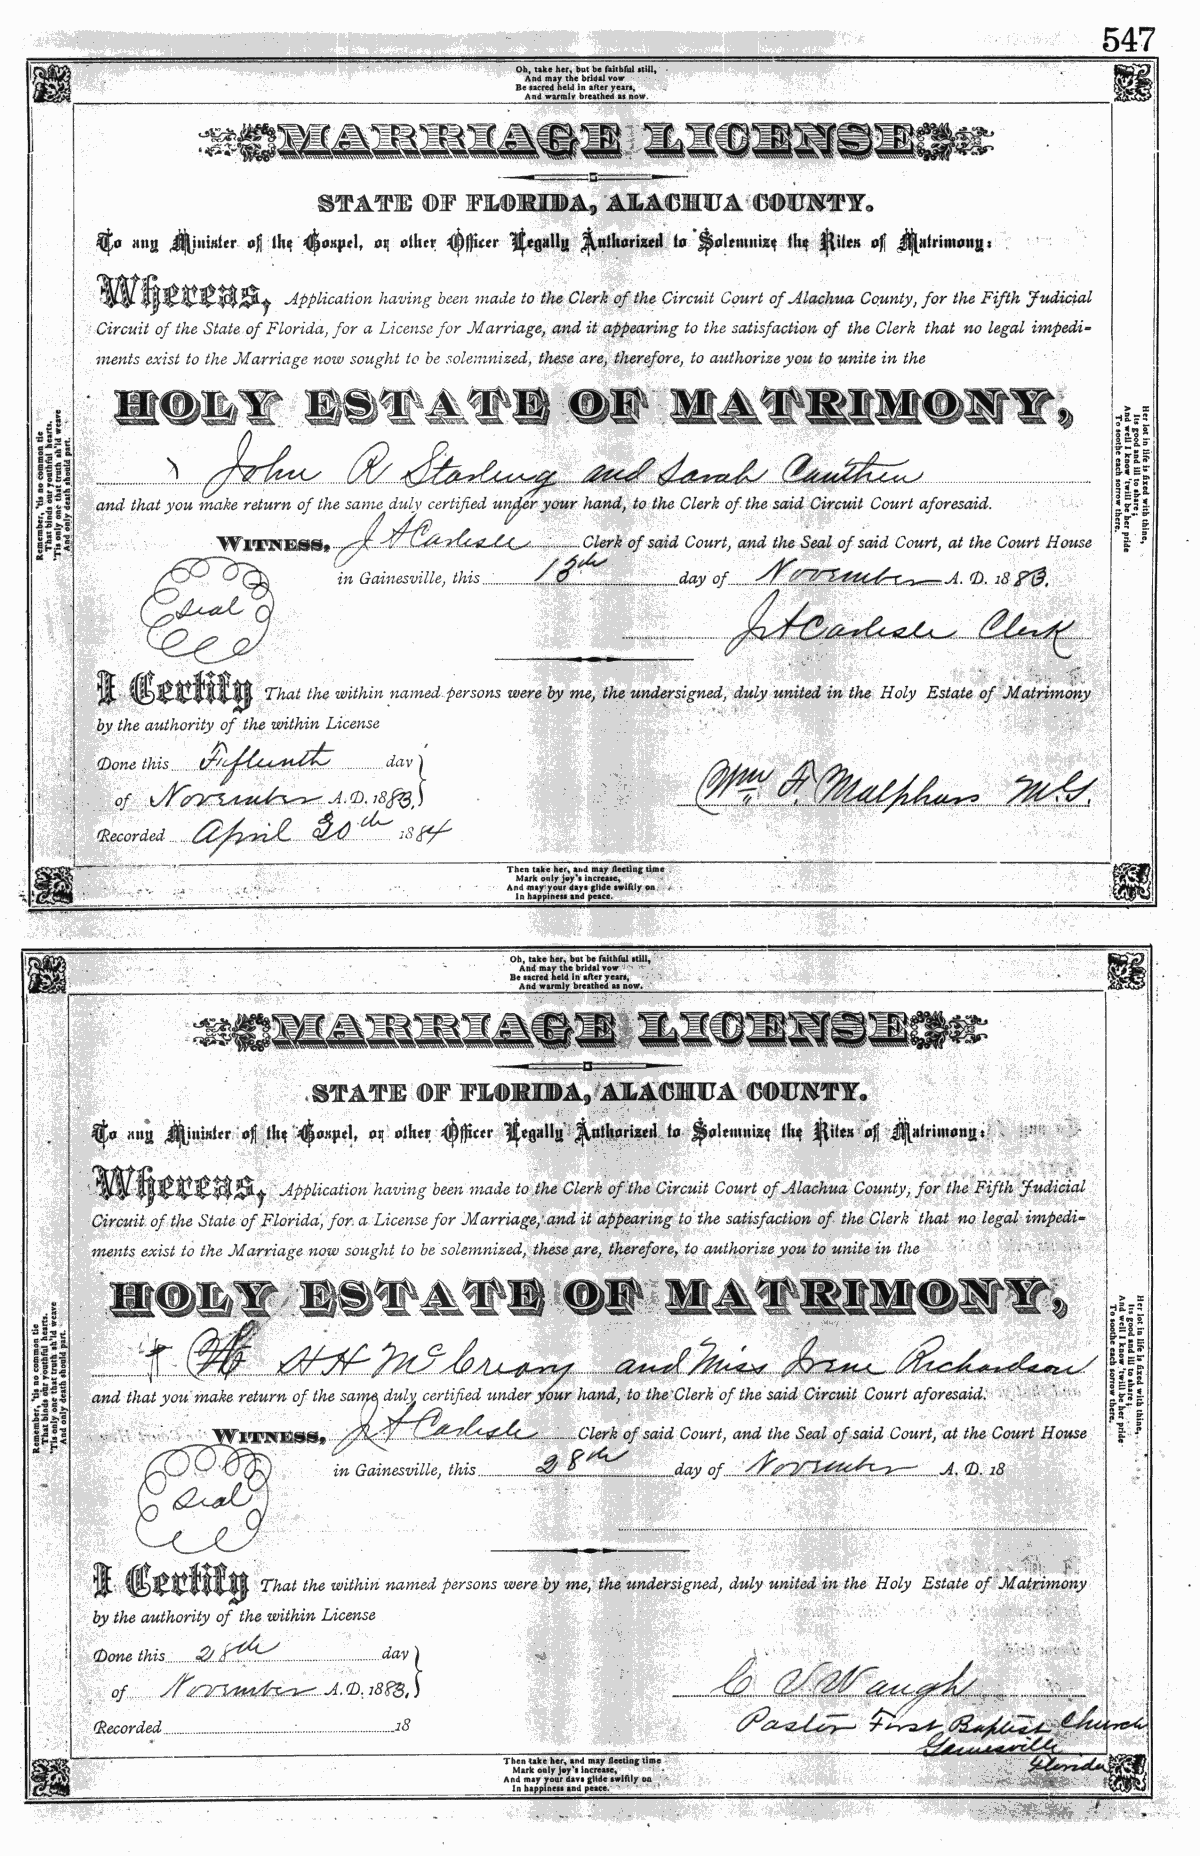 547
Oh, take her, but be faithful still,
And may the bridal vow
Be sacred held in after years,
And warmly breathed as now.
MARRIAGE LICENSE
STATE OF FLORIDA, ALACHUA COUNTY.
To any Minister of the Gospel, or other Officer Legally Authorized to Solemnize the Rites of Matrimony:
Whereas, Application having been made to the Clerk of the Circuit Court of Alachua County, for the Fifth Judicial
Circuit of the State of Florida, for a License for Marriage, and it appearing to the satisfaction of the Clerk that no legal impedi-
ments exist to the Marriage now sought to be solemnized, these are, therefore, to authorize you to unite in the
HOLY ESTATE OF MATRIMONY,
John R Starling and Sarah Cauthen
and that you make return of the same duly certified under your hand, to the Clerk of the said Circuit Court aforesaid.
WITNESS, J A Carlisle Clerk of said Court, and the Seal of said Court, at the Court House
in Gainesville, this 13th day of November A. D. 1883.
Seal
J A Carlisle Clerk
I Certify That the within named persons were by me, the undersigned, duly united in the Holy Estate of Matrimony
by the authority of the within License
Done this Fifteenth day
of November A.D. 1883.
Wm. F. Malphurs M.G.
Recorded April 30th 1884
Then take her, and may fleeting time
Mark only joy's increase,
And may your days glide swiftly on
In happiness and peace.
Remember, 'tis no common tie
That binds our youthful hearts,
'Tis only one that truth sh'ld weave
And only death should part.
Her lot in life is fixed with thine,
Its good and ill to share;
And well I know 'twill be her pride
To soothe each sorrow there.
Oh, take her, but be faithful still,
And may the bridal vow
Be sacred held in after years,
And warmly breathed as now.
MARRIAGE LICENSE
STATE OF FLORIDA, ALACHUA COUNTY.
To any Minister of the Gospel, or other Officer Legally Authorized to Solemnize the Rites of Matrimony:
Whereas, Application having been made to the Clerk of the Circuit Court of Alachua County, for the Fifth Judicial
Circuit of the State of Florida, for a License for Marriage, and it appearing to the satisfaction of the Clerk that no legal impedi-
ments exist to the Marriage now sought to be solemnized, these are, therefore, to authorize you to unite in the
HOLY ESTATE OF MATRIMONY,
H H McCreary and Miss Irene Richardson
and that you make return of the same duly certified under your hand, to the Clerk of the said Circuit Court aforesaid.
WITNESS, J A Carlisle Clerk of said Court, and the Seal of said Court, at the Court House
in Gainesville, this 28th day of November A. D. 18
Seal
I Certify That the within named persons were by me, the undersigned, duly united in the Holy Estate of Matrimony
by the authority of the within License
Done this 28th day
of November A.D. 1883.
C V Waugh
Recorded 18
Pastor First Baptist Church
Gainesville
Florida
Then take her, and may fleeting time
Mark only joy's increase,
And may your days glide swiftly on
In happiness and peace.
Remember, 'tis no common tie
That binds our youthful hearts.
'Tis only one that truth sh'ld weave
And only death should part.
Her lot in life is fixed with thine,
Its good and ill to share;
And well I know 'twill be her pride
To soothe each sorrow there.